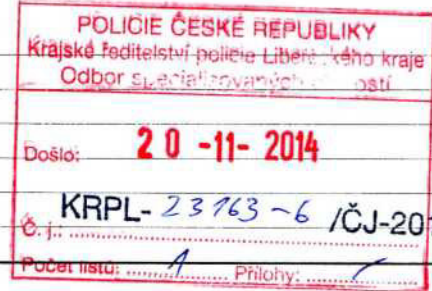 POLICIE ČESKÉ REPUBLIKY
Krajské ředitelství policie Libereckého kraje
Odbor specializovaných činností
Došlo: 20 -11- 2014
KRPL- 23163-6 /ČJ-20
Č. j.:
Počet listů: 1 Přílohy: